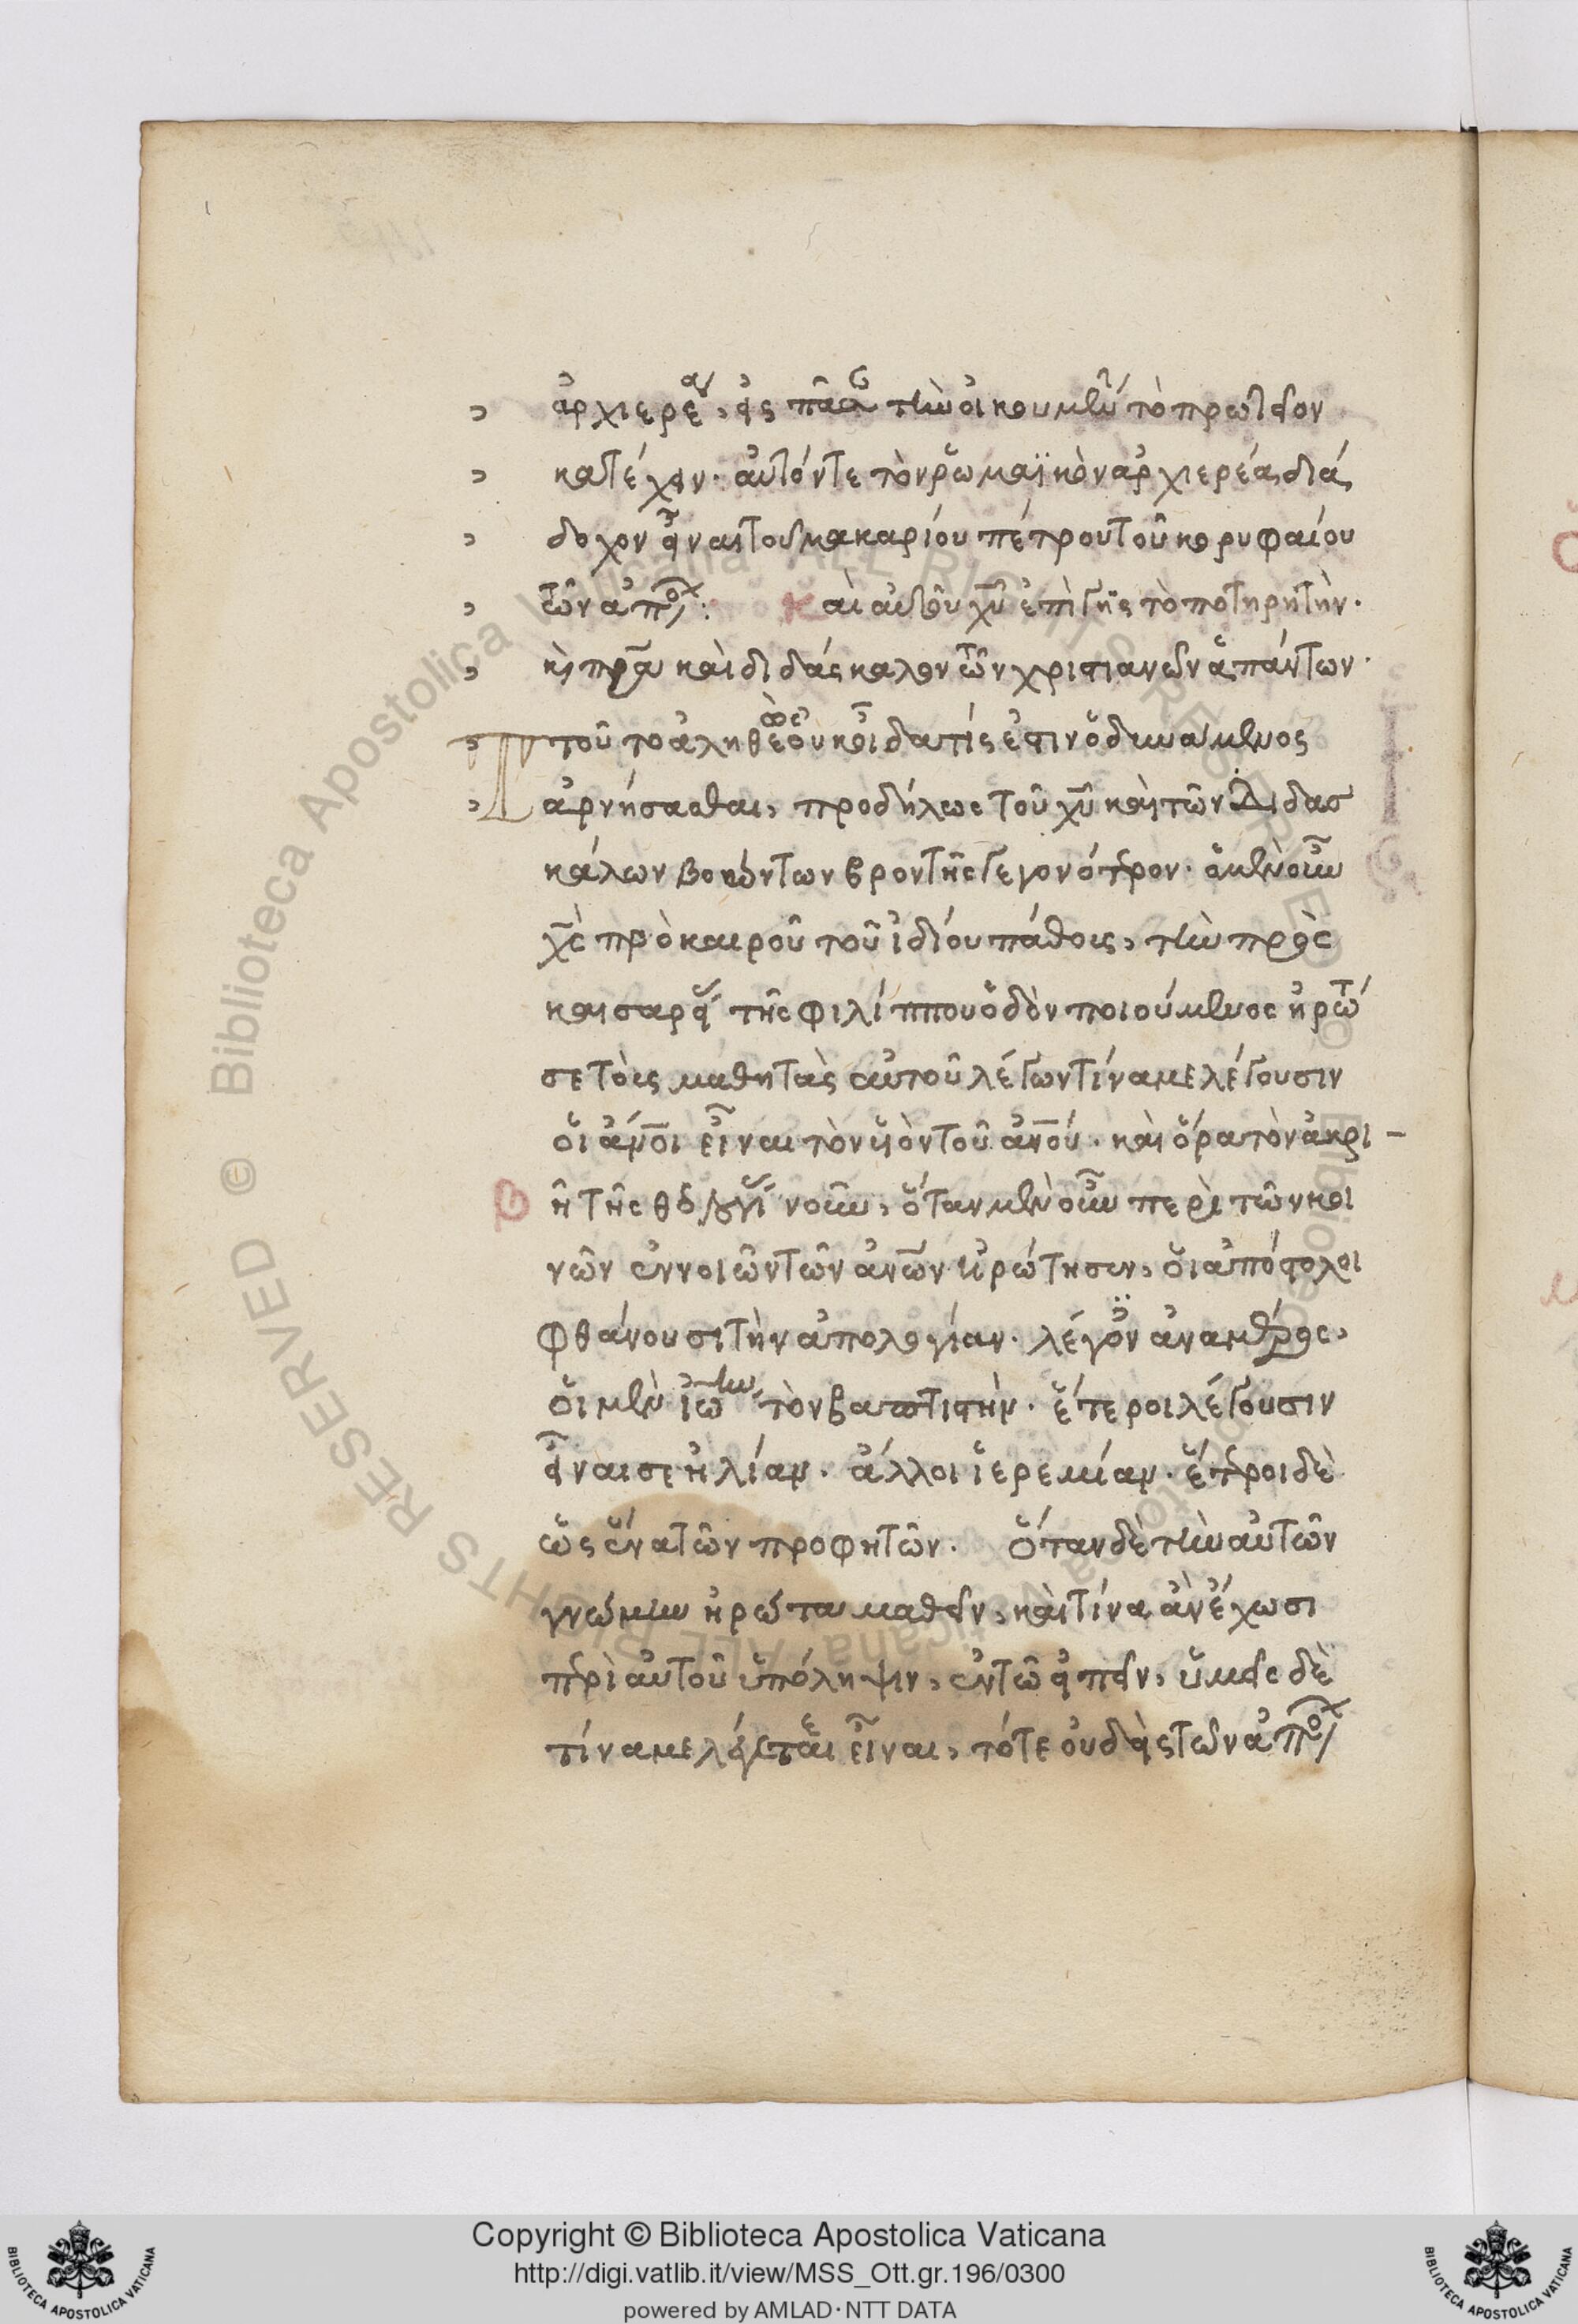 ἀρχιερέα, εἰς πᾶσαν τὴν οἰκουμένην τὸ πρωτεῖον
κατέχειν· αὐτόν τε τὸν ῥωμαϊκὸν ἀρχιερέα διά
δοχον εἶναι τοῦ μακαρίου πέτρου τοῦ κορυφαίου
τῶν ἀποστόλων: καὶ αὐτοῦ χῦ ἐπὶ γῆς τοποτηρητὴν·
κ πρα καὶ διδάσκαλον τῶν χριστιανῶν ἁπάντων·
τοῦτο ἀληθὲς οὐκ οἶδα τίς ἐστιν ὁ δυνάμενος
ἀρνήσασθαι, προδήλως τοῦ χῦ καὶ τῶν διδασ
κάλων βοώντων βροντῆς γεγονότερον· ὁ μὲν οὖν
χς πρὸ καιροῦ τοῦ ἰδίου πάθους, τὴν πρὸς
καισαρεί τῆς φιλίππου ὁδὸν ποιούμενος ἠρώτη
σε τοὺς μαθητὰς αὐτοῦ λέγων τίνα με λέγουσιν
οἱ ἄνοι εἶναι τὸν υἱὸν τοῦ ἀνοῦ· καὶ ὅρα τὸν ἀκρι-
β ῆ τῆς νοῦν, ὅταν μὲν οὖν περὶ τῶν κοι
νῶν ἐννοιῶν τῶν ἀνων ἠρώτησεν, οἱ ἀπόστολοι
φθάνουσι τὴν ἀπολογίαν· λέγον ἀναμέρος,
οἱ μὲν ἰωάννην τὸν βαπτιστὴν· ἕτεροι λέγουσιν
εἶναι σε ἠλίαν· ἄλλοι ἱερεμίαν· ἕτεροι δὲ
ὡς ἕνα τῶν προφητῶν· ὅταν δὲ τὴν αὐτῶν
γνώμην ἠρώτα μαθεῖν, καὶ τίνα ἂν ἔχωσι
περὶ αὐτοῦ ὑπόληψιν, ἐν τῶ εἰπεῖν, ὑμεῖς δὲ
τίνα με λέγεται εἶναι, τότε οὐδεὶς τῶν ἀποστόλων
Copyright © Biblioteca Apostolica Vaticana
http://digi.vatlib.it/view/MSS_Ott.gr.196/0300
powered by AMLAD·NTT DATA